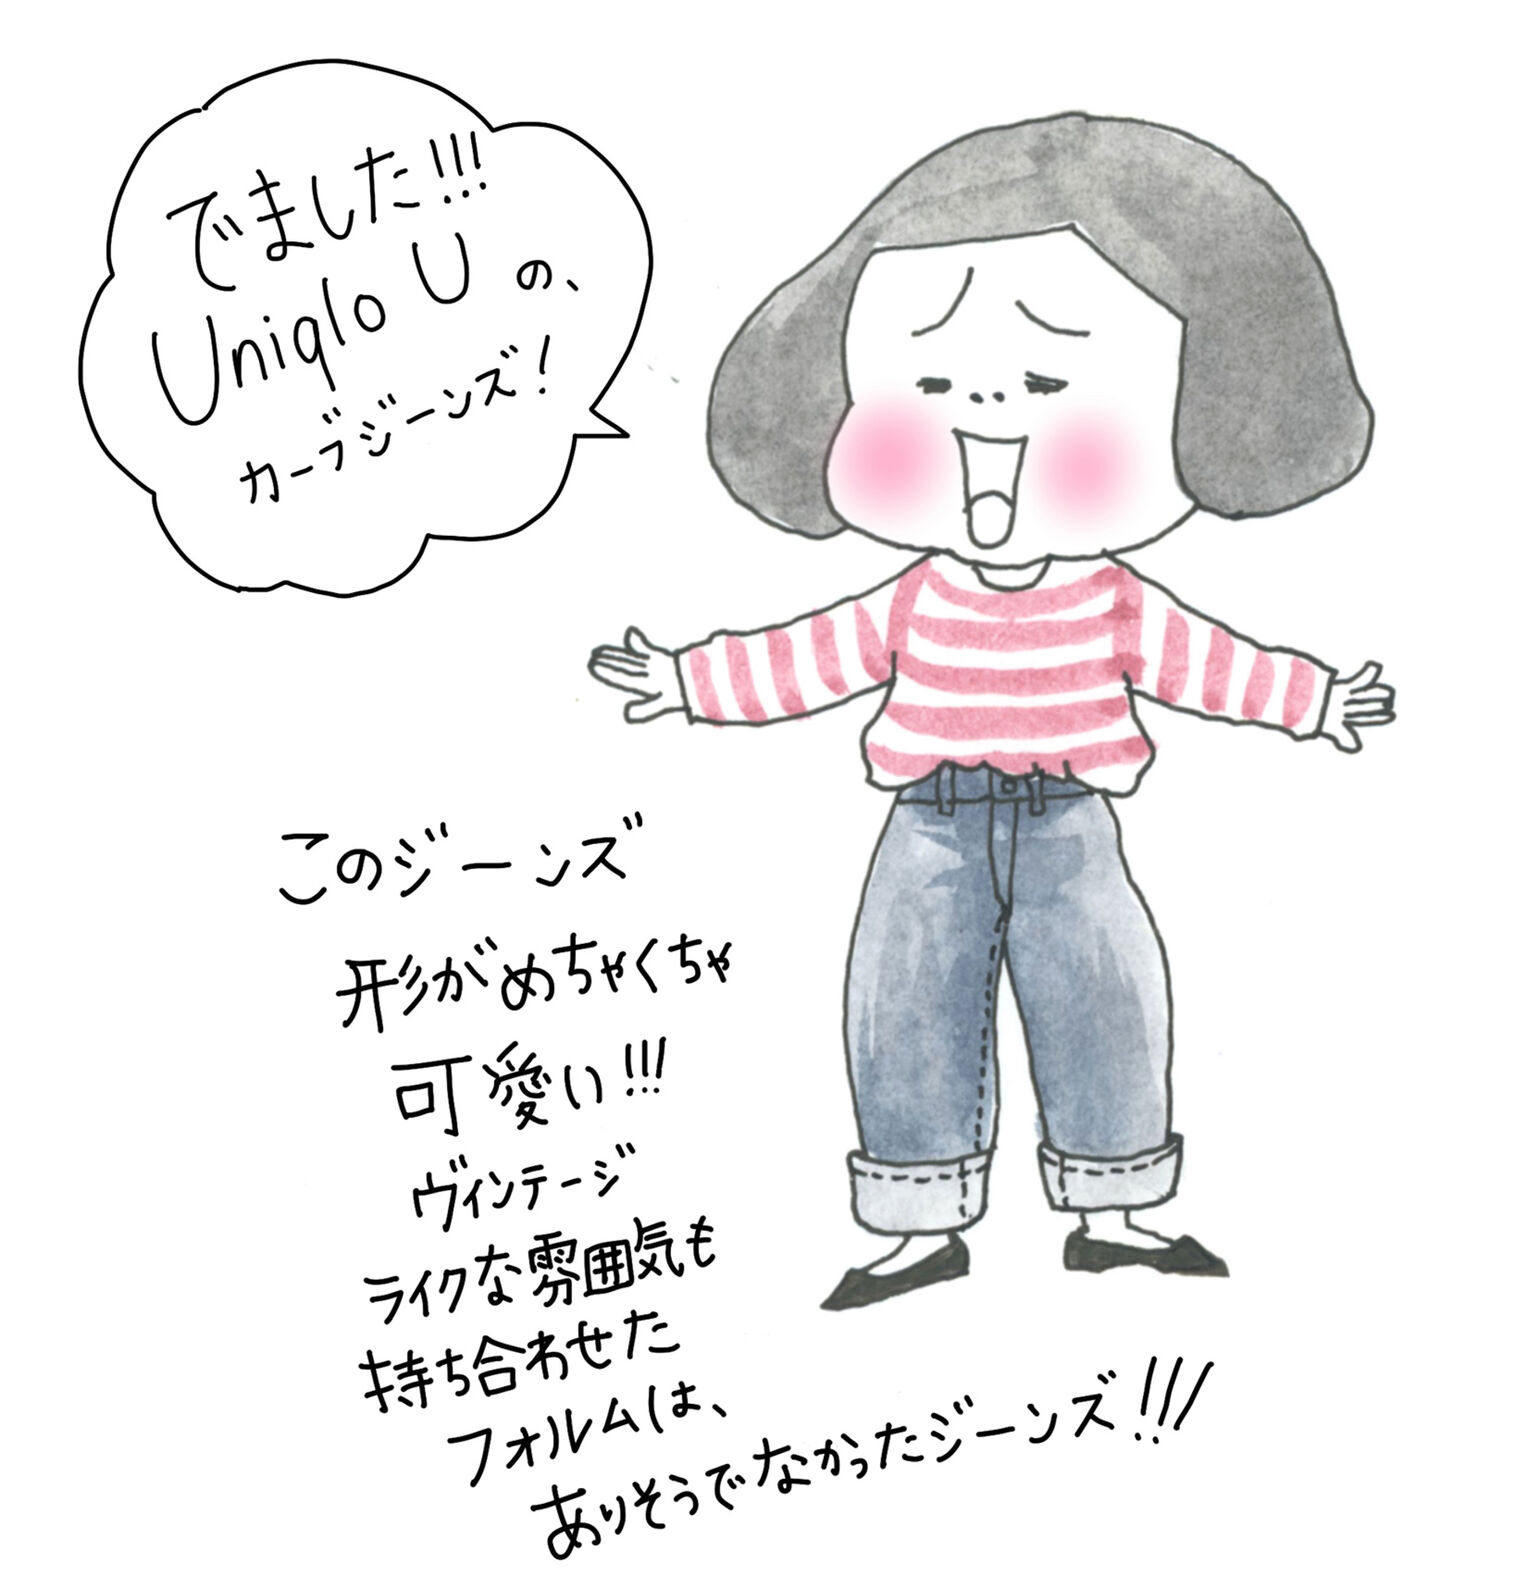 でました!!!
Uniqlo U の、
カーブジーンズ!
このジーンズ
形がめちゃくちゃ
可愛い!!!
ヴィンテージ
ライクな雰囲気も
持ち合わせた
フォルムは、
ありそうでなかったジーンズ!!!